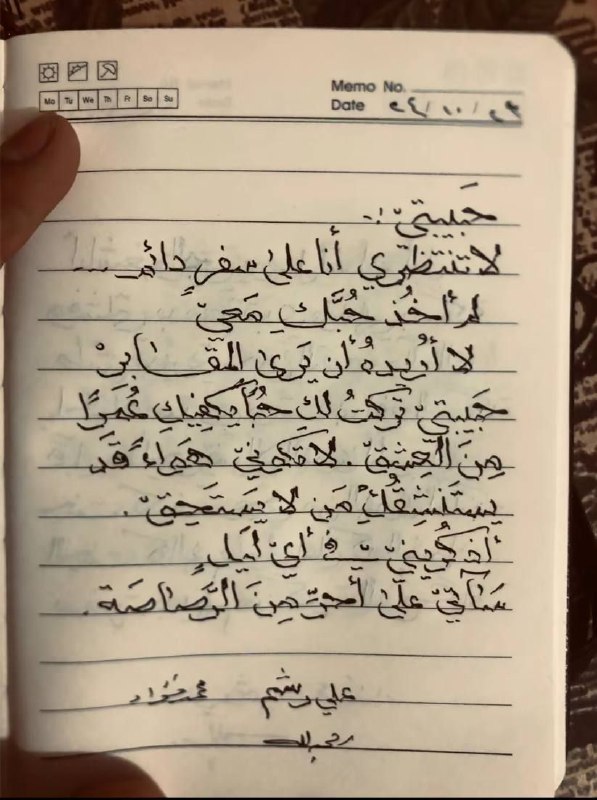 Memo No.
Mo Tu We Th Fr Sa Su
Date ٢٤/١٠/٢٣
حَبيبتيّ :-
لا تنتظري أنا على سفر دائم ....
لم أخُذ حُبَّكِ مَعيّ
لا أُريدهُ أن يَرىٰ المَقَابرْ
حَبيبتيّ تَركتُ لكِ حُبًا يكفيكِ عُمرًا
مِنَ العِشقّ. لا تكونيّ هَواءً قَد
يستَنشِقُكِ مَن لا يَستَحِقّ.
أذكُرينيّ في أيّ لَيلٍ
سَتأتيّ عليّ أحرّ مِنَ الرَصاصَة.
علي رشم محمد فؤاد